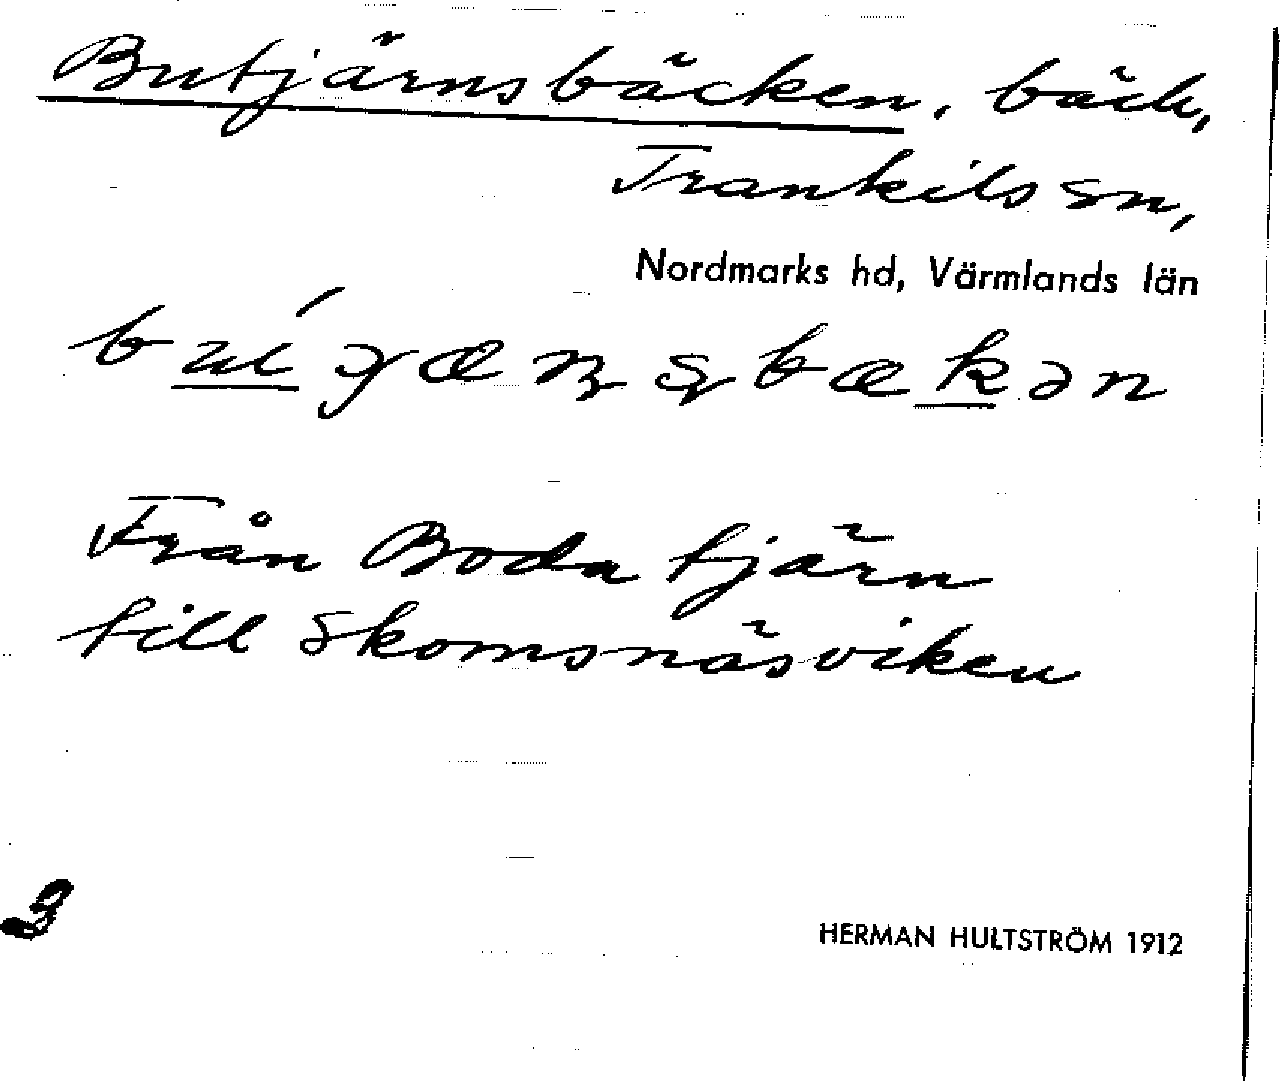 Butjärnsbäcken, bäck,
Trankils sn,
Nordmarks hd, Värmlands län
Från Boda tjärn
till Skomsnäsviken
3
HERMAN HULTSTRÖM 1912